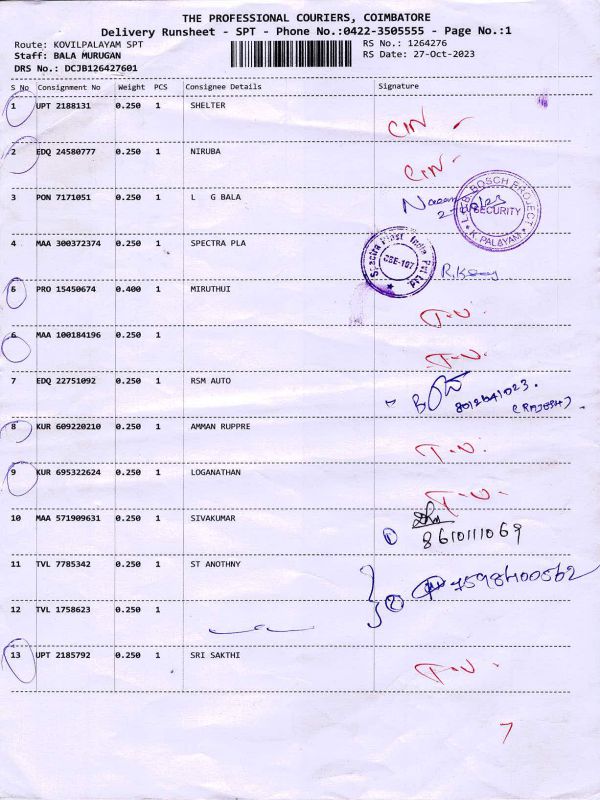 THE PROFESSIONAL COURIERS, COIMBATORE
Delivery Runsheet - SPT - Phone No.:0422-3505555 - Page No.:1
Route: KOVILPALAYAM SPT RS No.: 1264276
Staff: BALA MURUGAN RS Date: 27-Oct-2023
DRS No.: DCJB126427601
S No Consignment No Weight PCS Consignee Details Signature
1 UPT 2188131 0.250 1 SHELTER
CIN
2 EDQ 24580777 0.250 1 NIRUBA
CIN
3 PON 7171051 0.250 1 L G BALA
L&TB. BOSCH PROJECT SECURITY K. PALAYAM
4 MAA 300372374 0.250 1 SPECTRA PLA
Spectra Plast India Pvt Ltd CBE-107
5 PRO 15450674 0.400 1 MIRUTHUI
T.N.
6 MAA 100184196 0.250 1
T.N.
7 EDQ 22751092 0.250 1 RSM AUTO
(RAJESH)
8 KUR 609220210 0.250 1 AMMAN RUPPRE
T.N.
9 KUR 695322624 0.250 1 LOGANATHAN
T.N.
10 MAA 571909631 0.250 1 SIVAKUMAR
1 8610111069
11 TVL 7785342 0.250 1 ST ANOTHNY
2
12 TVL 1758623 0.250 1
13 UPT 2185792 0.250 1 SRI SAKTHI
T.N.
7